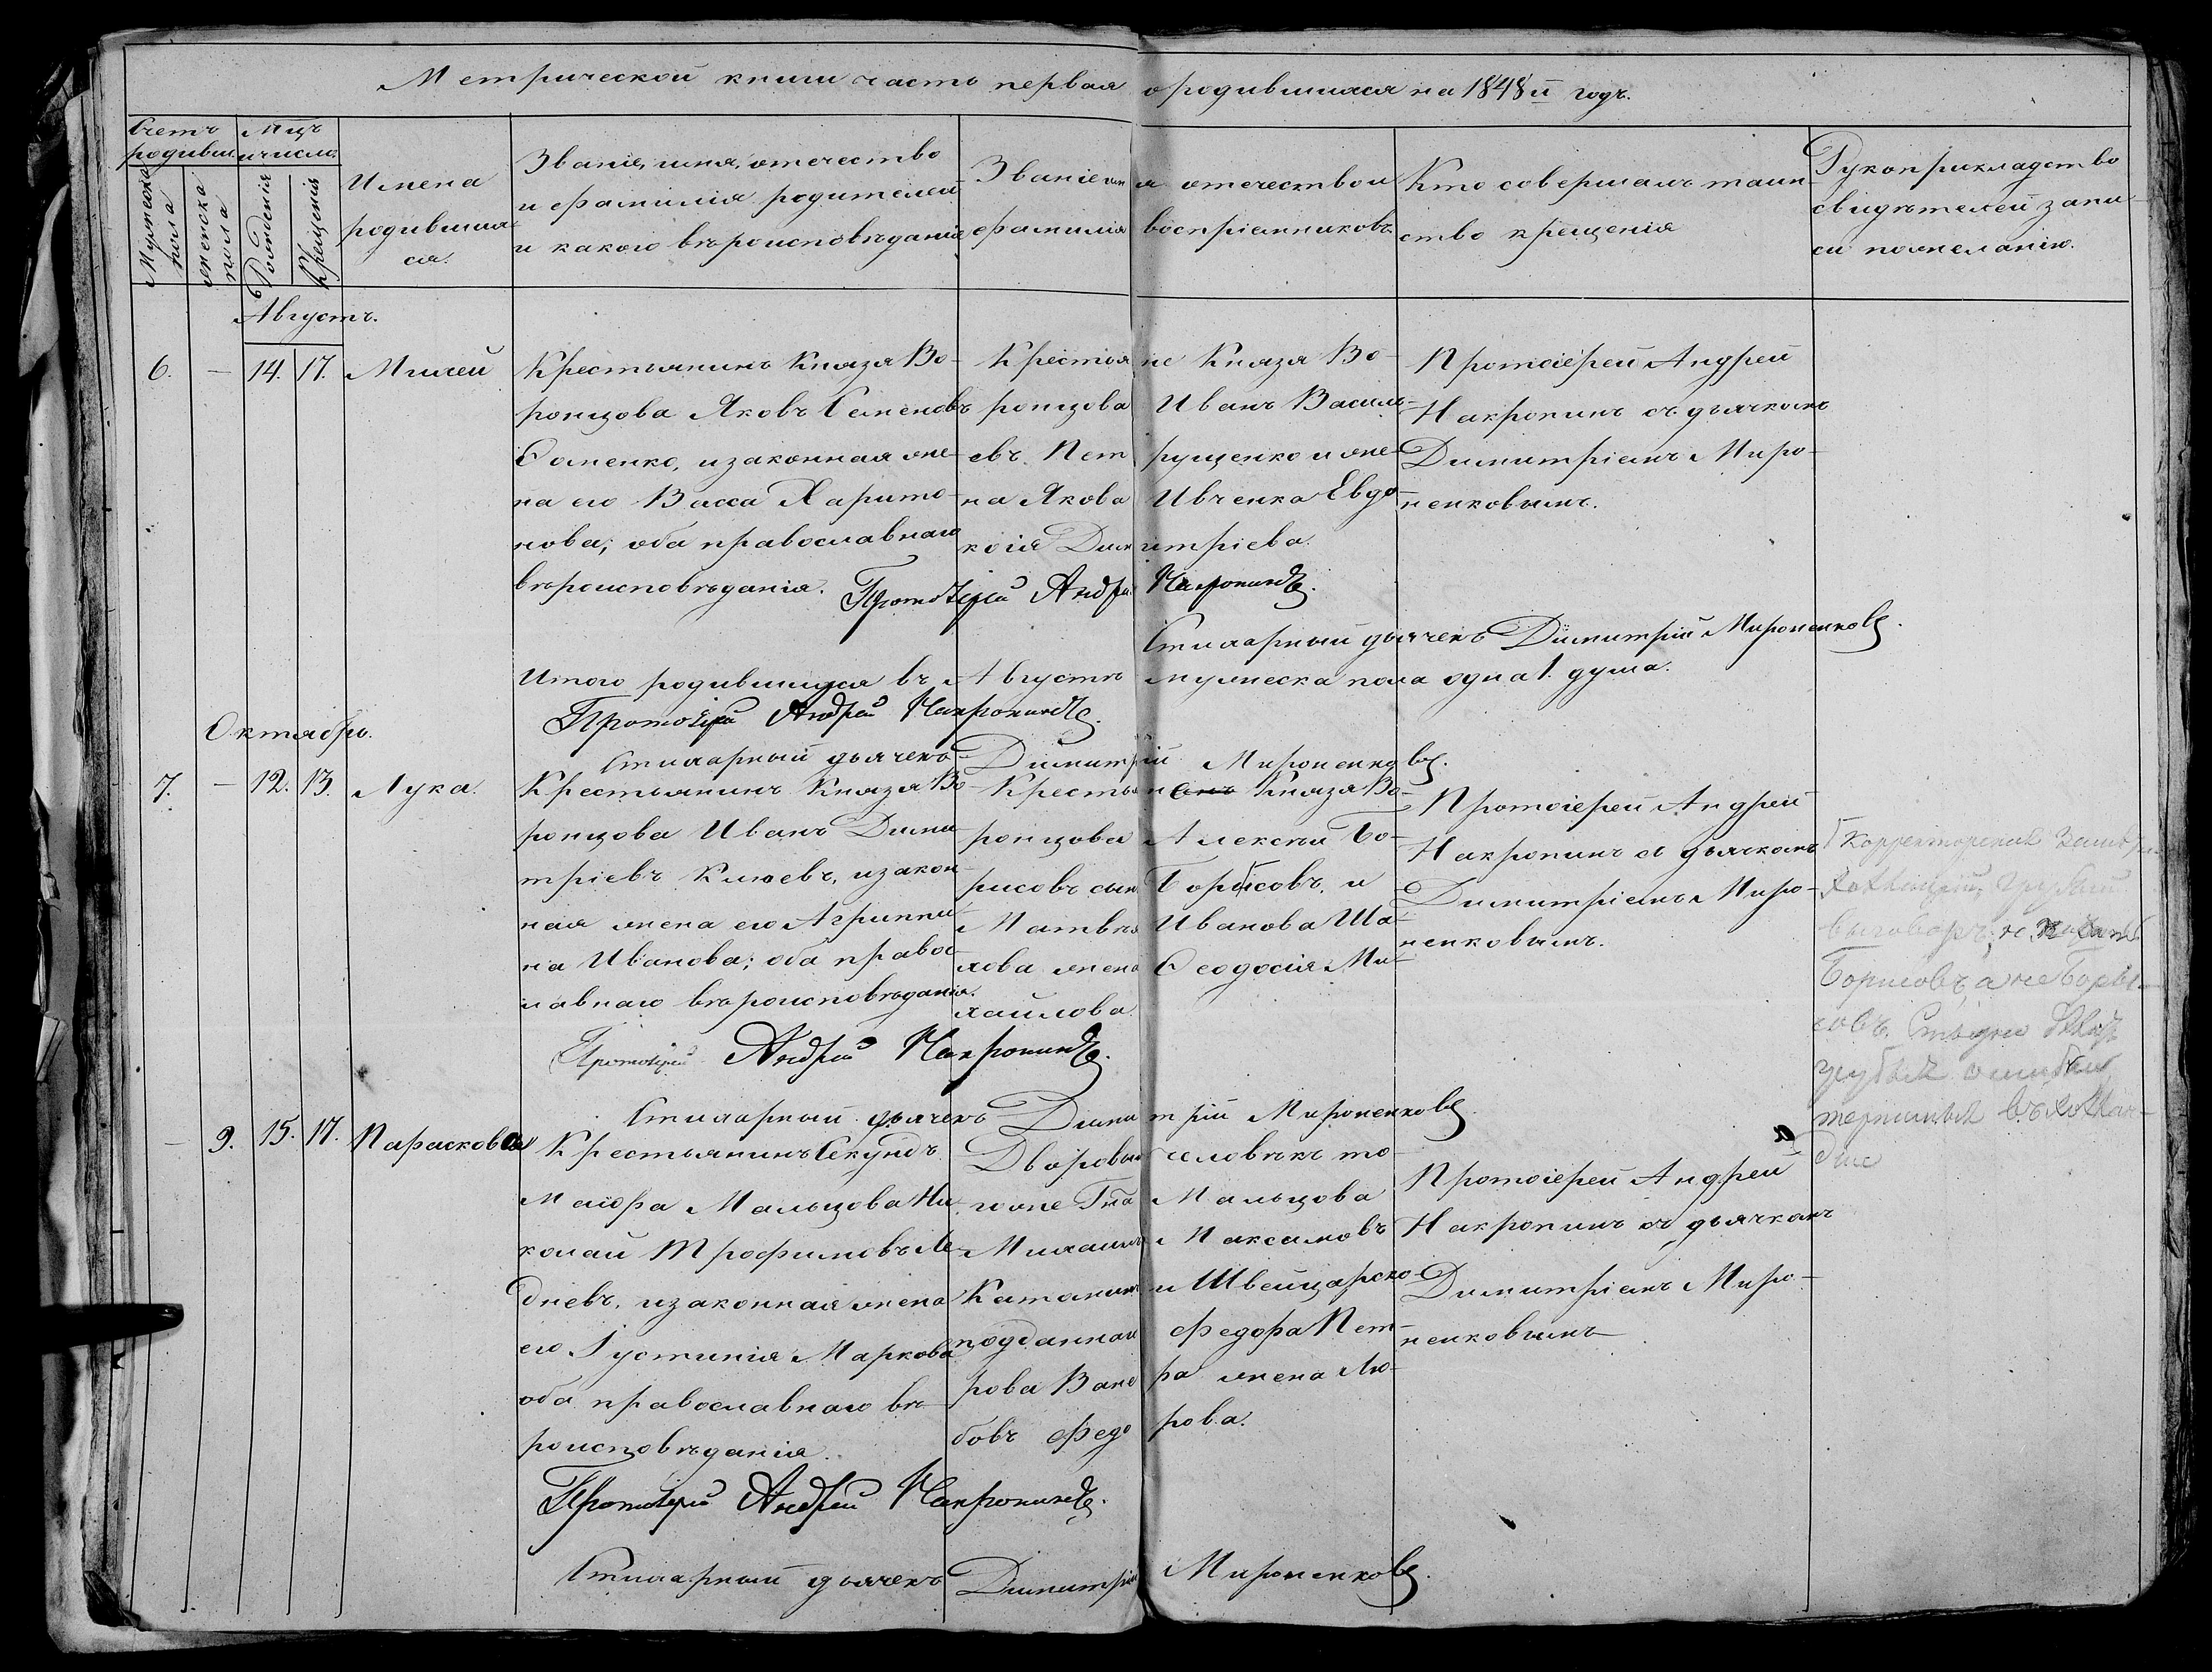 Метрической книги часть первая о родившихся на 1848й годъ.
Счетъ родивш.
Мужеска пола
женска пола
Мцъ и число
Рожденія
Крещенія
Имена
родивших
ся.
Званіе, имя, отечество
и фамилія родителей
и какого вѣроисповѣданія
Званіе имя отечество и
фамилія воспріемниковъ
Кто совершалъ таин-
ство крещенія
Рукоприкладство
свидѣтелей запи-
си по желанію.
Августъ.
6. – 14. 17. Михей
Крестьянинъ Князя Во-
ронцова Яковъ Семеновъ
Ѳоменко, и законная же-
на его Васса Харито-
нова; оба православнаго
вѣроисповѣданія.
Крестьяне Князя Во-
ронцова Иванъ Василь-
евъ Петрущенко и же-
на Якова Ивченка Евдо-
кія Димитріева.
Протоіерей Андрей
Накропинъ съ дьячкомъ
Димитріемъ Миро-
ненковымъ.
Протоіерей Андрей Накропинъ.
Стихарный дьячекъ Димитрій Мироненковъ.
Итого родившихся въ Августѣ мужеска пола одна 1. душа.
Протоіерей Андрей Накропинъ.
Стихарный дьячекъ Димитрій Мироненковъ.
Октябрь.
7. – 12. 13. Лука.
Крестьянинъ Князя Во-
ронцова Иванъ Дими-
тріевъ Клюевъ, и закон-
ная жена его Агриппи-
на Иванова; оба правос-
лавнаго вѣроисповѣданія.
Крестьянинъ Князя Во-
ронцова Алексѣй Бо-
рисовъ сынъ Борисовъ, и
Матвѣя Иванова Ша-
хова жена Ѳеодосія Ми-
хаилова.
Протоіерей Андрей
Накропинъ съ дьячкомъ
Димитріемъ Миро-
ненковымъ.
выговоръ
Борисовъ, а не Боры-
совъ.
Протоіерей Андрей Накропинъ.
Стихарный дьячекъ Димитрій Мироненковъ.
– 9. 15. 17. Парасковія
Крестьянинъ Секундъ
Маіора Мальцова Ни-
колай Трофимовъ Ле-
дневъ, и законная жена
его Іустинія Маркова
оба православнаго вѣ-
роисповѣданія.
Дворовый человѣкъ то-
гоже Гна Мальцова
Михаилъ Максимовъ
Катанинъ и Швейцарско-
подданнаго Федора Пет-
рова жена Лю-
бовъ Федорова.
Протоіерей Андрей
Накропинъ съ дьячкомъ
Димитріемъ Миро-
ненковымъ
Протоіерей Андрей Накропинъ.
Стихарный дьячекъ Димитрій Мироненковъ.